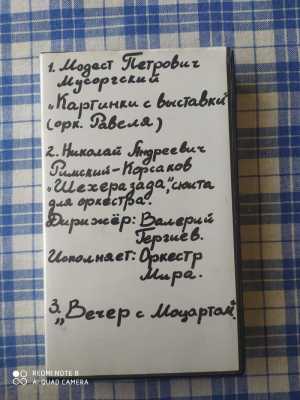 1. Модест Петрович
Мусоргский
„Картинки с выставки"
(орк. Равеля)
2. Николай Андреевич
Римский-Корсаков
„Шехеразада", сюита
для оркестра.
Дирижёр: Валерий
Гергиев.
Исполняет: Оркестр
Мира.
3. „Вечер с Моцартом".
REDMI NOTE 8
AI QUAD CAMERA